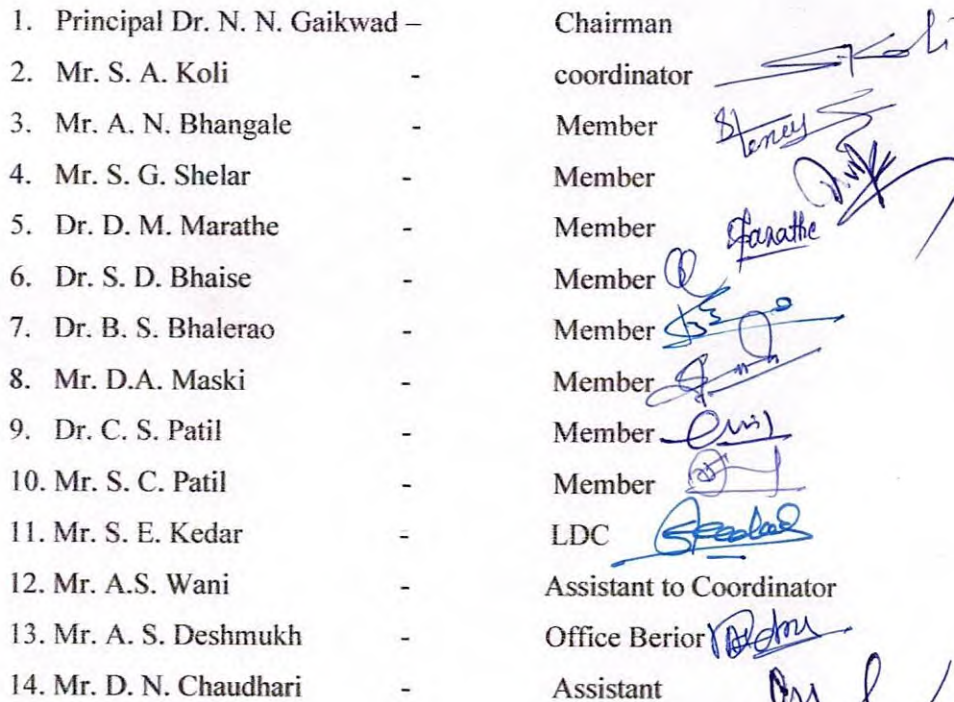 1. Principal Dr. N. N. Gaikwad – Chairman
2. Mr. S. A. Koli - coordinator
3. Mr. A. N. Bhangale - Member
4. Mr. S. G. Shelar - Member
5. Dr. D. M. Marathe - Member
6. Dr. S. D. Bhaise - Member
7. Dr. B. S. Bhalerao - Member
8. Mr. D.A. Maski - Member
9. Dr. C. S. Patil - Member
10. Mr. S. C. Patil - Member
11. Mr. S. E. Kedar - LDC
12. Mr. A.S. Wani - Assistant to Coordinator
13. Mr. A. S. Deshmukh - Office Berior
14. Mr. D. N. Chaudhari - Assistant